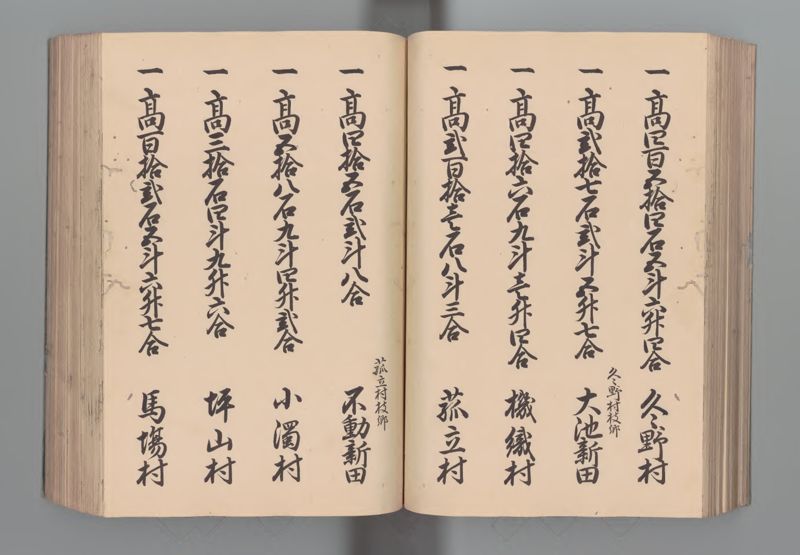 一 髙四百五拾四石五斗六升四合 久々野村
久々野村枝郷
一 髙弐拾七石弐斗五升七合 大池新田
一 髙四拾六石九斗壱升四合 機織村
一 髙弐百拾壱石八斗三合 菰立村
菰立村枝郷
一 髙四拾五石弐斗八合 不動新田
一 髙五拾八石九斗四升弐合 小濁村
一 髙三拾石四斗九升六合 坪山村
一 髙百拾弐石五斗六升七合 馬場村